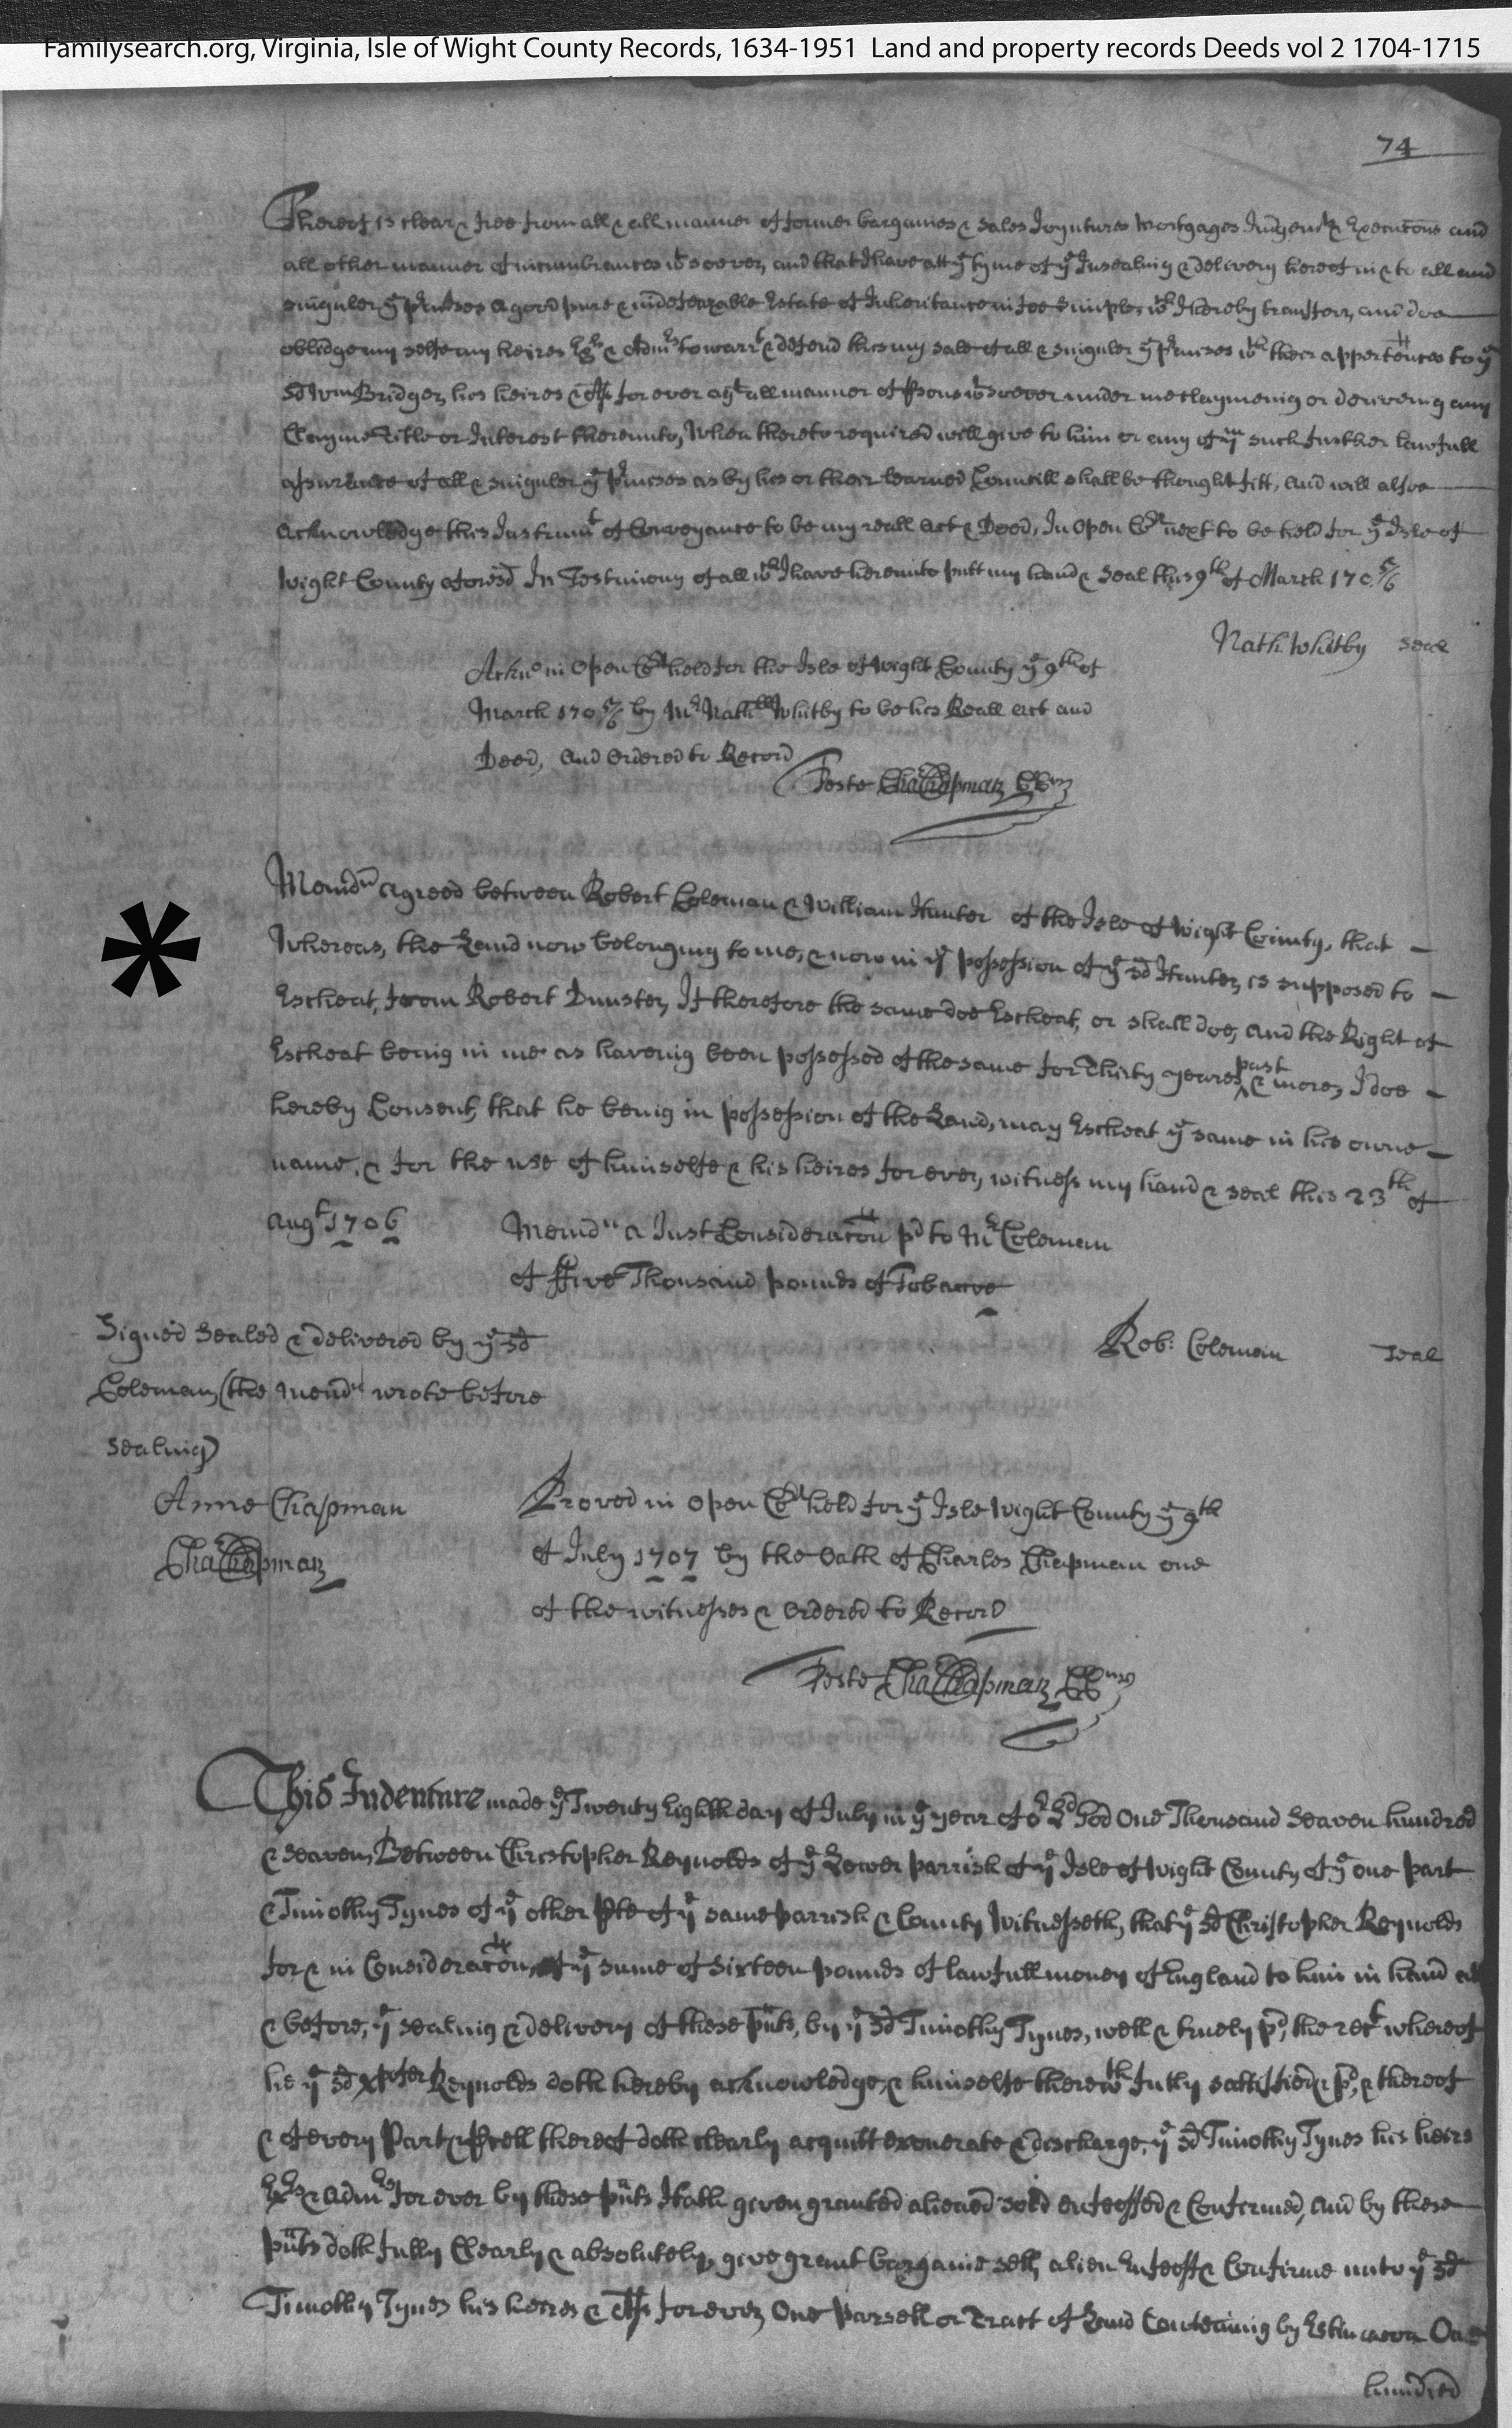 Familysearch.org, Virginia, Isle of Wight County Records, 1634-1951 Land and property records Deeds vol 2 1704-1715
74
Thereof is clear & free from all & all manner of former bargaines & sales Joyntures Mortgages Judgemts & Executons and
all other manner of incumbrances wtsoever, and that I have att ye tyme of ye Insealing & delivery hereof in & to all and
singuler ye prmises a good pure & indefeazable Estate of Inheritance in fee Simple, wch I hereby transferr, and doe
oblidge my selfe my heires Exrs & Admrs to warrt & defend this my sale of all & singuler ye prmises wth their appertences to ye
sd Wm Bridger, his heires & Ass for ever agt all manner of psons wtsoever under me claymeing or deriveing any
Clayme Title or Interest thereunto, When thereto required will give to him or any of ym such further lawfull
assurance of all & singuler ye prmises as by his or their learned Councill shall be thought fitt, and will alsoe
acknowledge this Instrumt of Conveyance to be my reall act & Deed, In open Crt next to be held for ye Isle of
Wight County aforesd In Testimony of all wch I have hereunto putt my hand & seal this 9th of March 170 5/6
Nath. Whitby seal
Ackn° in open Crt held for the Isle of Wight County ye 9th of
March 170 5/6 by Mr Nathll Whitby to be his Reall act and
Deed, and ordered to Record
Teste Cha Chapman
Memdm agreed between Robert Coleman & William Hunter of the Isle of Wight County, that
Whereas, the Land now belonging to me, & now in ye possession of ye sd Hunter, is supposed to
Escheat, from Robert Dunster, If therefore the same doe Escheat, or shall doe, and the Right of
Escheat being in me as haveing been possessed of the same for Thirty yeares past & more, I doe
hereby Consent, that he being in possession of the Land, may Escheat ye same in his owne
name, & for the use of himselfe & his heires for ever, witness my hand & seal this 23th of
augt 1706 Memdm a Just Consideraton pd to Mr Coleman
of ffive Thousand pounds of Tobaccoe
Signed Sealed & delivered by ye sd
Rob: Coleman seal
Coleman, (the Memdm wrote before
sealing)
Anne Chapman
Cha Chapman
Proved in open Crt held for ye Isle Wight County ye 9th
of July 1707 by the Oath of Charles Chapman one
of the witnesses & ordered to Record
Teste Cha Chapman
This Indenture made ye Twenty Eighth day of July in ye year of or Ld God One Thousand Seaven hundred
& Seaven, Between Christopher Reynolds of ye Lower parrish of ye Isle of Wight County of ye one part
& Timothy Tynes of ye other pte of ye same parrish & County Witnesseth, that ye sd Christopher Reynolds
for & in Consideraton of ye sume of Sixteen pounds of lawfull money of England to him in hand att
& before, ye sealing & delivery of these pnts, by ye sd Timothy Tynes, well & truely pd, the rect whereof
he ye sd Xtofer Reynolds doth hereby acknowledge, & himselfe therewth fully sattisfied & pd, & thereof
& of every Part & pcell thereof doth clearly acquitt exonerate & discharge, ye sd Timothy Tynes his heirs
Exrs & Admrs for ever by these pnts Hath given granted aliened sold enfeoffed & Confirmed, and by these
pnts doth fully Clearly & absolutely, give grant bargaine sell, alien Enfeoff & Confirme unto ye sd
Timothy Tynes his heires & Ass for ever, One parsell or Tract of Land Conteining by Estimacon One
hundred